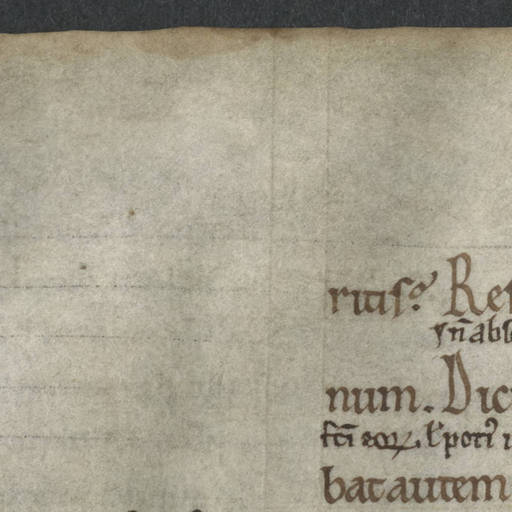 ritis? Res
yn̄ abs
num. Dic
sc̄i eoꝝ. ł poti᷒
bat autem